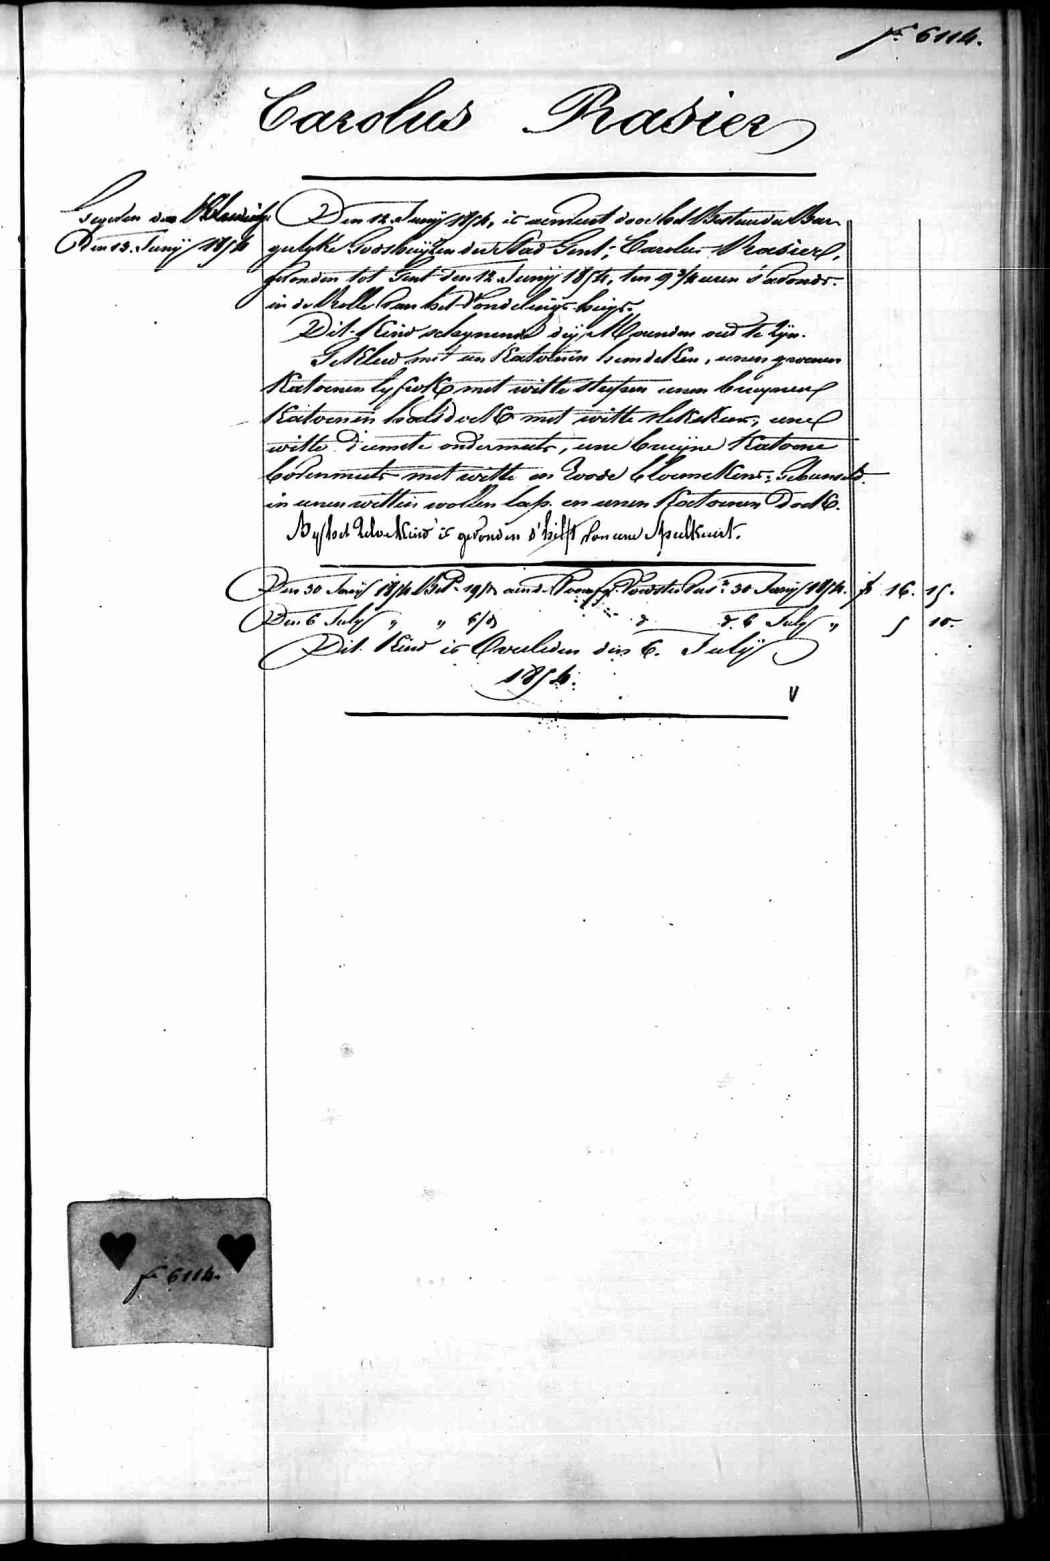 f° 6114.
Carolus Rasier
Den 13. Junij 1854
Den 12 Junij 1854, is aenveert door het Bestuur der Bur-
gerlyke Godshuijzen der Stad Gent; Carolus Rasier,
gevonden tot Gent den 12 Junij 1854, ten 9 3/4 uren s'avonds.
in de Rolle van het Vondelings-huijs.
Dit Kind schynende dry Maenden oud te zyn.
Gekleed met een Katoenen hemdeken, eenen groenen
Katoenen lyfrok met witte streepen eenen bruynen
Katoenen halsdoek met witte plekken, eene
witte diemete ondermuts, eene bruijne Katoene
bovenmuts met witte en roode bloemekens; Gebunseld
in eenen witten wollen lap. en eenen Katoenen Doek.
By het zelve Kind is gevonden d'helft van eene Speelkaert.
Den 30 Junij 1854 Bet. 19/d aend. Voedster 30 Junij 1854. f 16. 15.
Den 6 July " " 6/d d° d° 6 July " 5 10
Dit Kind is Overleden den 6. Julij
1854.
V
f° 6114.